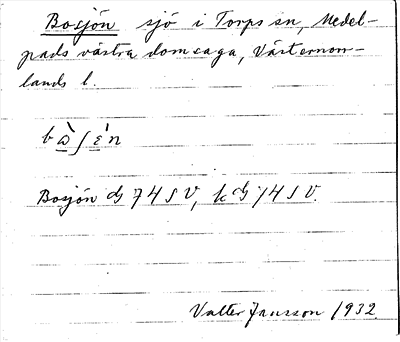 Bosjön sjö i Torps sn, Medel-
pads västra domsaga, Västernorr-
lands l.
Bosjön dg 74 SV, kdg 74 SV.
Valter Jansson 1932